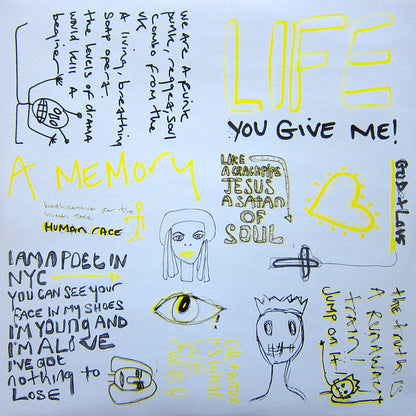 WE ARE A FUNK
PUNK, REGGAE SOUL
COMBO FROM THE
UK
A living, breathing
SOAP opera.
the levels of drama
would kill a
beginner
LIFE
YOU GIVE ME!
A MEMORY
human race
HUMAN RACE
LIKE
A CRACKPIPE
JESUS
A SATAN
OF
SOUL
GOD + LOVE
I AM A POET IN
NYC
YOU CAN SEE YOUR
FACE IN MY SHOES
I'M YOUNG AND
I'M ALIVE
I'VE GOT
nothing to
LOSE
IT'S WHAT
WE
the truth is
A RUNAWAY
train!
JUMP ON IT!